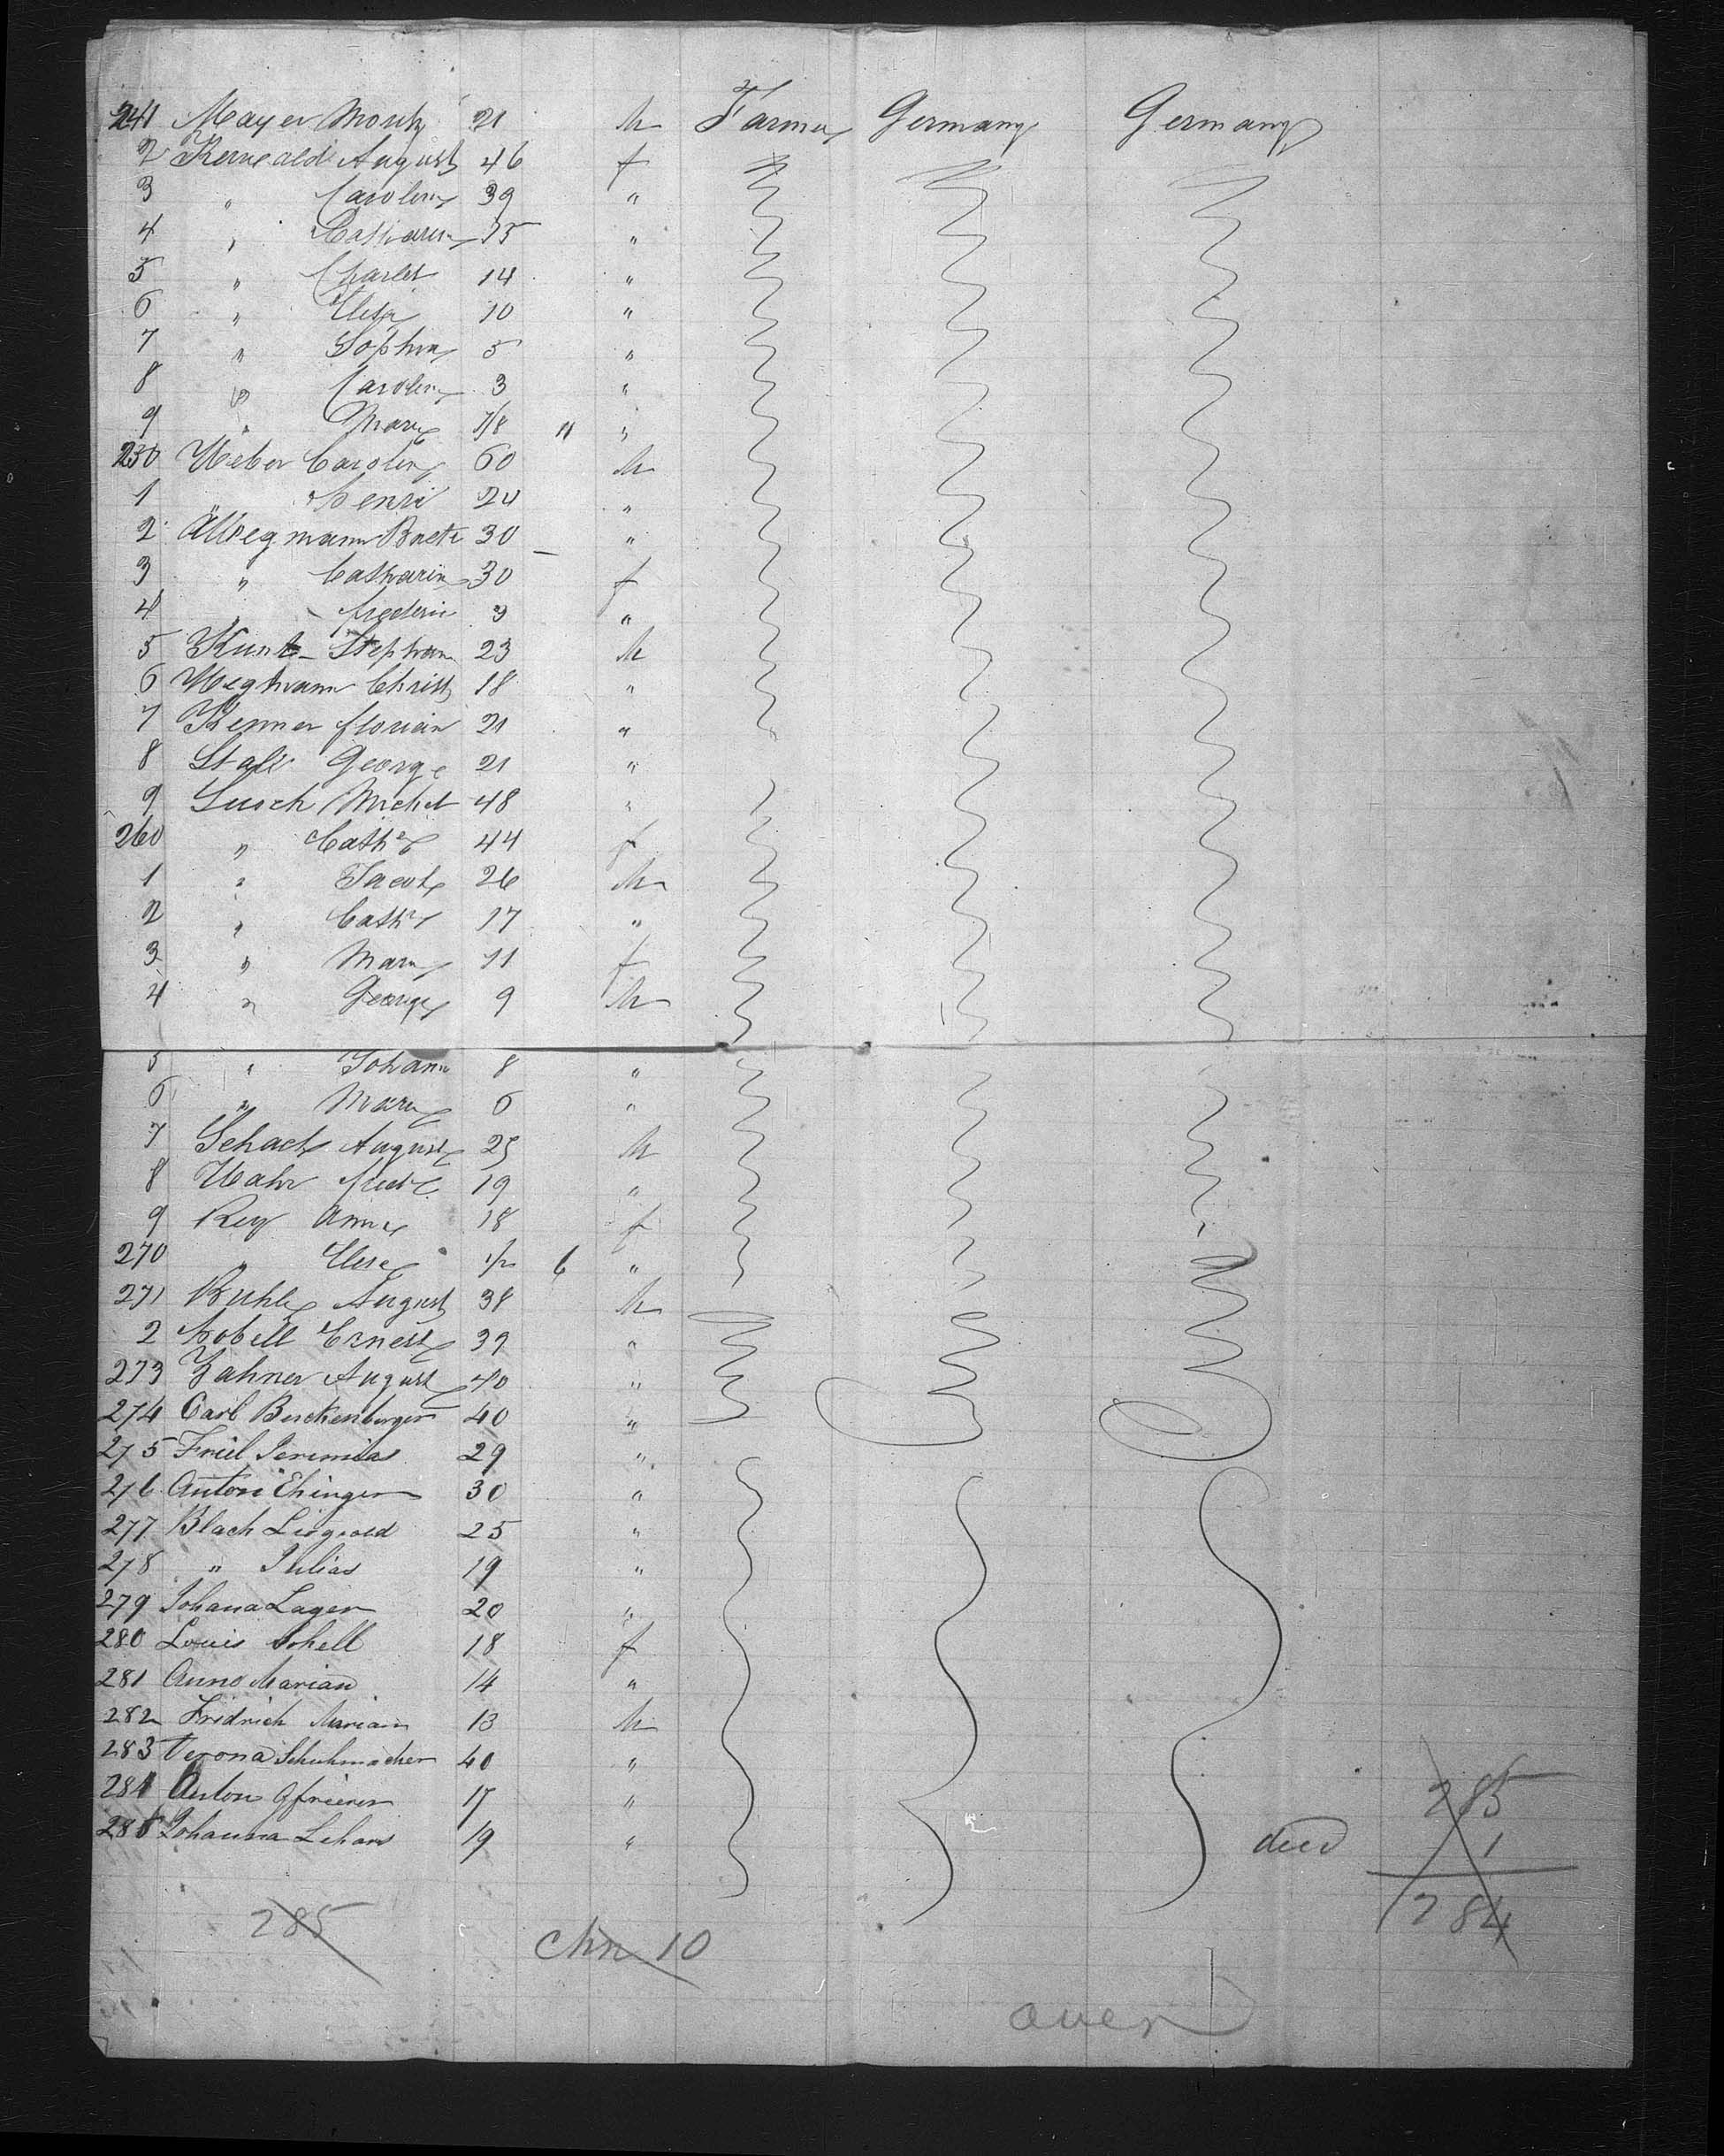 241 Mayer Moritz 21 M Farmer Germany Germany
2 August 46 f
3 " Carolina 39 "
4 " Catharin 15 "
5 " Charlet 14 "
6 " Elisa 10 "
7 " Sophia 5 "
8 " Carolin 3 "
9 " Marie 7/8 11 "
230 Weber Carolin 60 M
1 " Henri 24 "
2 30 "
3 " Catharin 30 f
4 " frederic 3 "
5 Kuntz Stephan 23 M
6 Wegmann Christ 18 "
7 Kenner florian 21 "
8 Stall George 21 "
9 Lusch Michel 48 "
260 " Cath 44 f
1 " Jacob 26 M
2 " Cath 17 "
3 " Marie 11 f
4 " George 9 M
5 " Johann 8 "
6 " Marie 6 "
7 Schach August 25 M
8 Hahn 19 "
9 Rey Anna 18 f
270 " Elise 1/2 6 "
271 Ruhle August 38 M
2 Hobell Ernest 39 "
273 Zahner August 40 "
274 Carl Berchenberger 40 "
275 Friel Jeremias 29 "
276 Anton Ehinger 30 "
277 Blach 25 "
278 " Julias 19 "
279 Johana Lager 20 "
280 Louis Schell 18 f
281 Anno Marian 14 "
282 Fridrich Marian 13 M
283 Verona Schuhmacher 40 "
284 Anton Gfrierer 17 "
285 Johanna Lehans 19 "
285
1
died
284
285
Chn 10
over